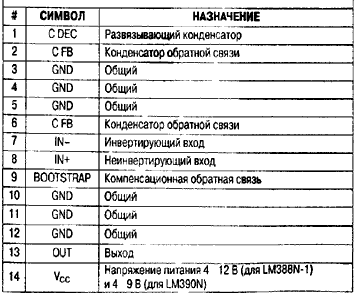 # СИМВОЛ НАЗНАЧЕНИЕ
1 C DEC Развязывающий конденсатор
2 C FB Конденсатор обратной связи
3 GND Общий
4 GND Общий
5 GND Общий
6 C FB Конденсатор обратной связи
7 IN– Инвертирующий вход
8 IN+ Неинвертирующий вход
9 BOOTSTRAP Компенсационная обратная связь
10 GND Общий
11 GND Общий
12 GND Общий
13 OUT Выход
14 VCC Напряжение питания 4 12 В (для LM388N-1)
и 4 9 В (для LM390N)